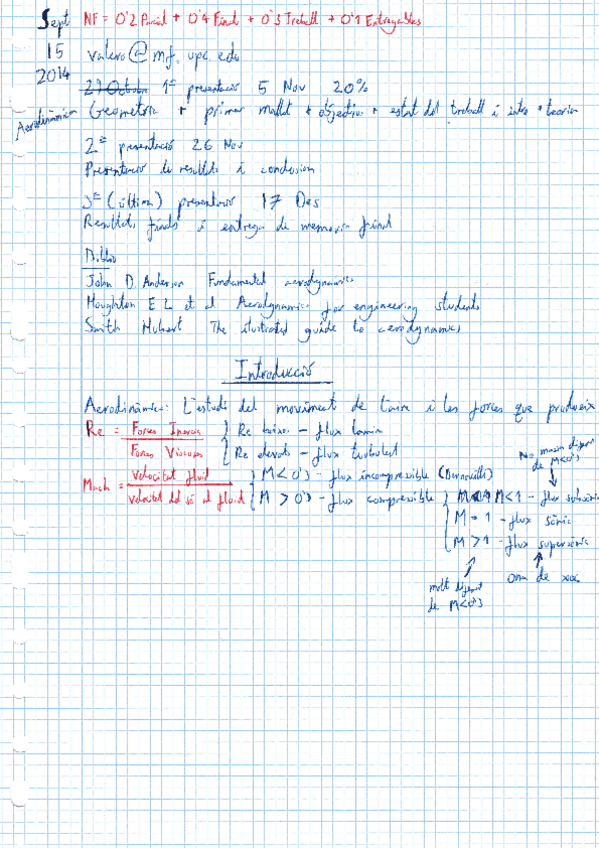 Sept NF = 0'2 Parcial + 0'4 Final + 0'3 Treball + 0'1 Entregables
15 valero@mf.upc.edu
2014
29 Octubre 1ª presentació 5 Nov 20%
Aerodinàmica Geometria + primer mallat + objectius + estat del treball i intro + teoria
2ª presentació 26 Nov
Presentació de resultats i conclusion
3ª (última) presentació 17 Des
Resultats finals i entrega de memoria final
Biblio
John D. Anderson Fundamental aerodynamics
Houghton E L et al Aerodynamics for engineering students
Smith Hubert The ilustrated guide to aerodynamics
Introducció
Aerodinàmica: L'estudi del moviment de l'aire i les forces que produeix
Re = Forces Inercia / Forces Viscoses { Re baixos - flux laminar
Re elevats - flux turbulent
No massa diferent de M<0'3
Mach = velocitat fluid / velocitat del só al fluid { M < 0'3 - flux incompressible (Bernouilli)
M > 0'3 - flux compressible { M<1 - flux subsònic
M = 1 - flux sònic
M > 1 - flux supersònic
molt diferent de M<0'3
ona de xoc